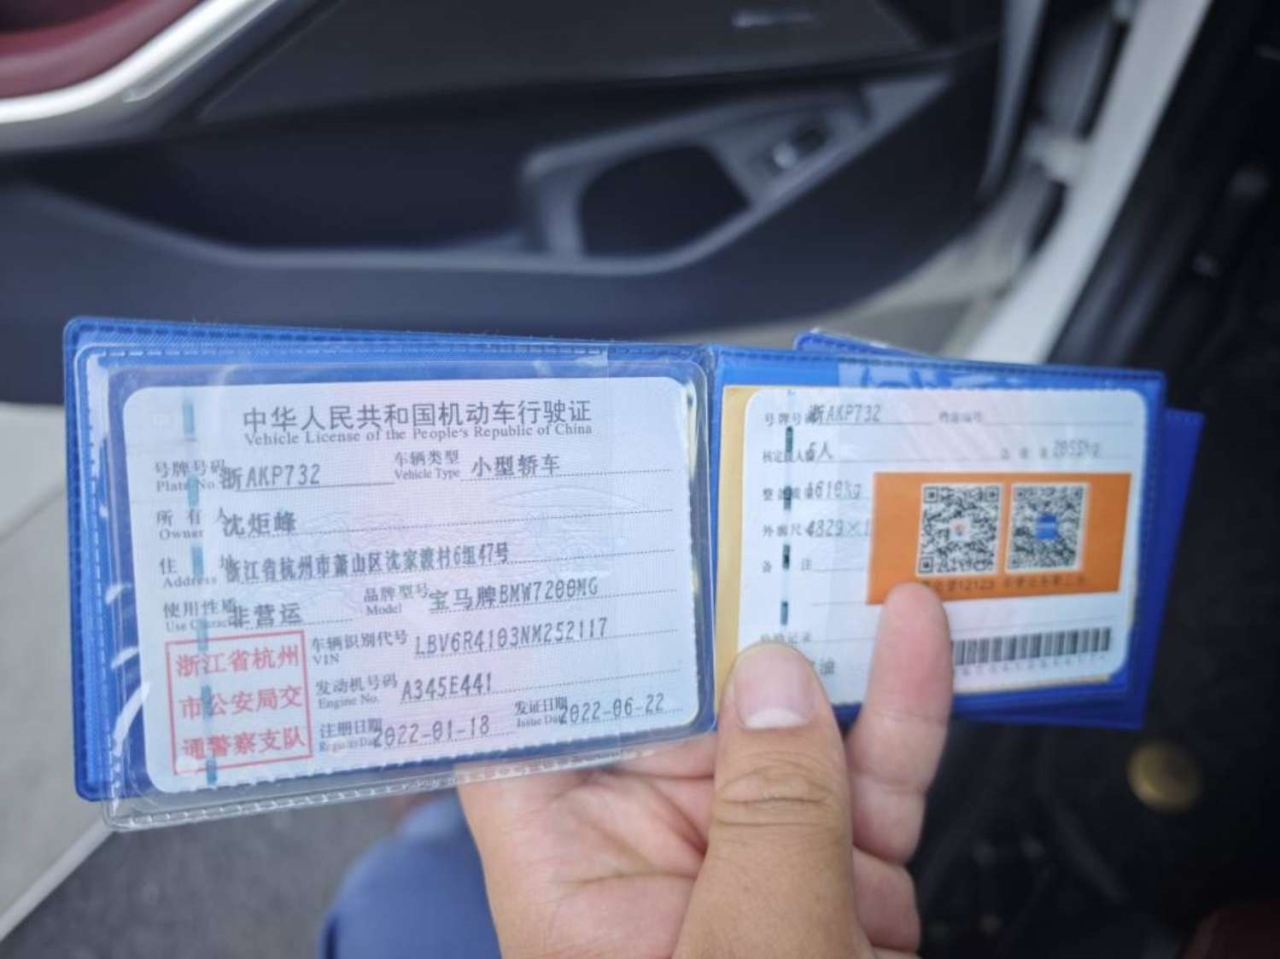 中华人民共和国机动车行驶证
Vehicle License of the People's Republic of China
号牌号码 浙AKP732 车辆类型 小型轿车
Plate No. Vehicle Type
所有人 沈炬峰
Owner
住址 浙江省杭州市萧山区沈家渡村6组47号
Address
使用性质 非营运 品牌型号 宝马牌BMW7200MG
Use Charac Model
车辆识别代号 LBV6R4103NM252117
VIN
发动机号码 A345E441
Engine No.
注册日期 2022-01-18 发证日期 2022-06-22
Issue Dat
浙江省杭州
市公安局交
通警察支队
号牌号 浙AKP732 档案编号
5人
外廓尺
备注
检验记录
油